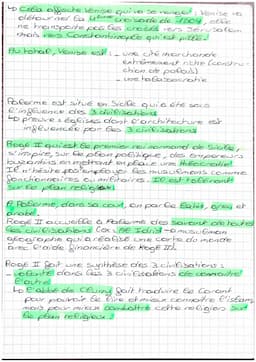 ↳ Cela affecte Venise qui va se venger : Venise va
détourner la 4ème croisade de 1204, elle
ne transporte pas les croisés vers Jérusalem
mais vers Constantinople qui est pillé.
Au total, Venise est : - une cité marchande
extrêmement riche (construction
de palais)
- une thalassocratie
Palerme est situé en Sicile qui a été sous
l'influence des 3 civilisations
↳ preuve : églises dont l'architecture est
influencée par les 3 civilisations
Roger II qui est le premier roi normand de Sicile,
s'inspire, sur le plan politique, des empereurs
byzantins en mettant en place une théocratie.
Il n'hésite pas employer les musulmans comme
fonctionnaires ou militaires. Il est tolérant
sur le plan religieux.
A Palerme, dans sa cour, on parle latin, grec et
arabe.
Roger II accueille à Palerme des savants de toutes
les civilisations (ex: Al Idrisi → musulman
géographe qui a réalisé une carte du monde
avec l'aide financière de Roger II).
Roger II fait une synthèse des 3 civilisations :
- volonté dans les 3 civilisations de connaître
l'autre
↳ l'abbé de Cluny fait traduire le Coran
pour pouvoir le lire et mieux connaître l'islam
mais pour mieux combattre cette religion sur
le plan religieux.